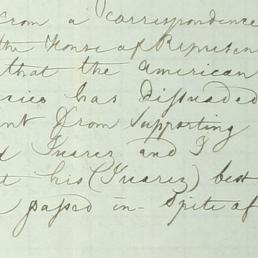 from a correspondence
the House of Represen
that the American
cies has dissuaded
ent from supporting
d Juarez and I
t his (Juarez) best
passed in-spite of